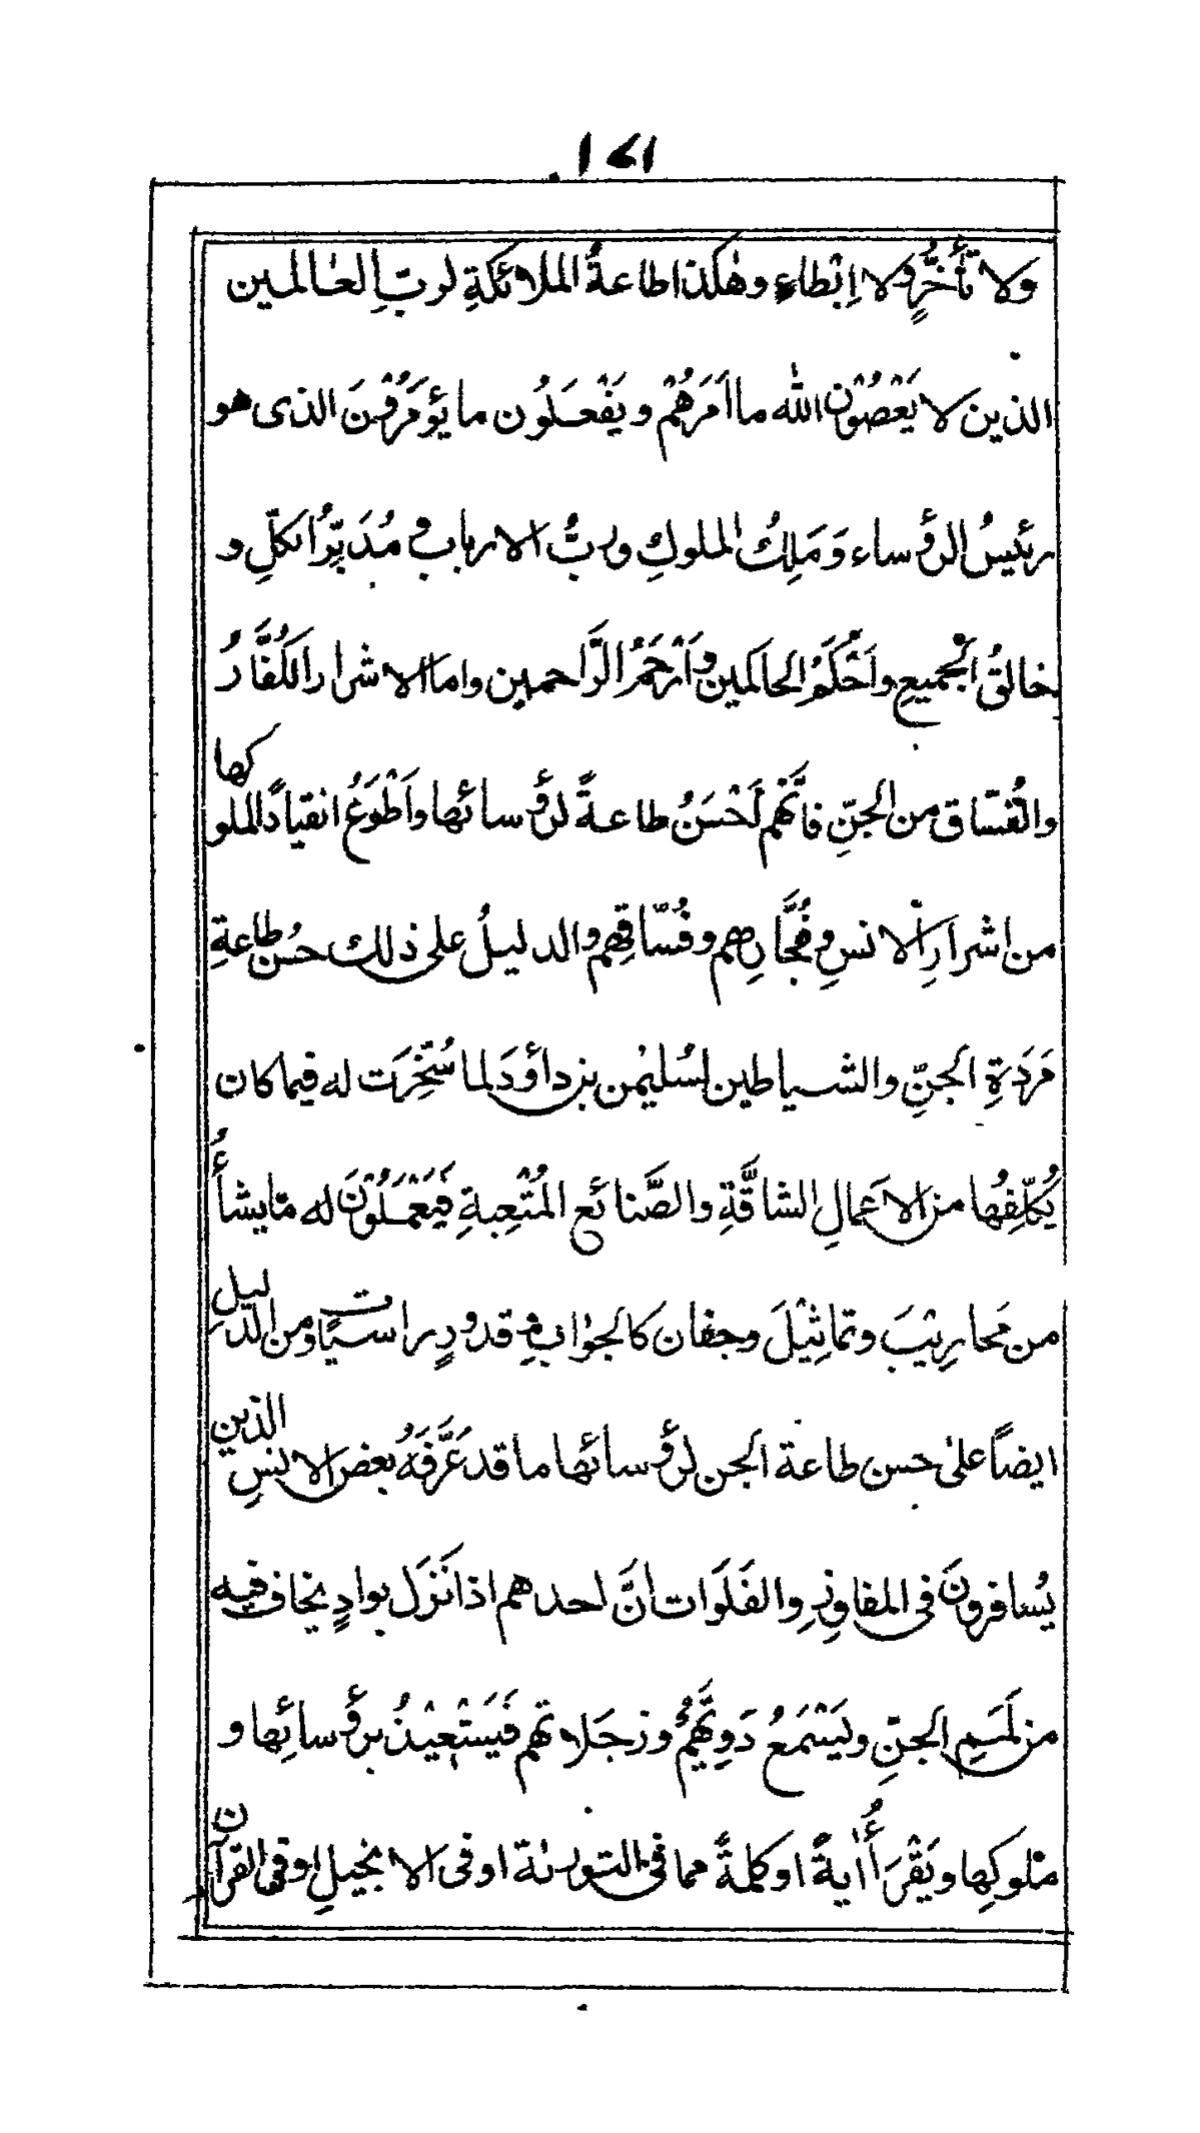 ١٧١
ولا تَأَخُّرٍ ولا اِبْطاءٍ وهٰكذا طاعةُ الملائكةِ لربِّ العٰالمين
الذين لا يَعْصُوْن اللّٰه ما اَمَرَهُمْ ويَفْعَلُون ما يُؤْمَرُوْنَ الذى هو
رئيسُ الرؤساء وَمَلِكُ الملوكِ وربُّ الارباب و مُدَبِّرُ الكلِّ و
خالقُ الْجميعِ واَحْكَمُ الحاكمين واَرْحَمُ الرَّاحمين واما الاشرار الكُفَّارُ
والفُسّاق من الجنِّ فانَّهم اَحْسَنُ طاعةً لرؤسائها واَطْوَعُ انقيادًا لملوكها
من اشرارِ الْانسِ وفُجَّارِهم وفُسّاقِهم والدليلُ على ذلك حُسْن طاعةِ
مَرَدَةِ الجنِّ والشياطين لسُليمٰن بن داؤدَ لما سُخِّرَت له فيما كان
يُكلِّفُها من الاعمالِ الشاقَّةِ والصَّنائع المُتْعِبةِ فَيَعْمَلُوْنَ له ما يشأُ
من مَحارِيْبَ وتماثِيْلَ وجفان كالجوٰاب و قدورٍ راسيٰات ومن الدليلِ
ايضاً علىٰ حسن طاعة الجن لرؤسائها ما قد عَرَّفَهُ بعض الانسِ الذين
يُسافرونَ فى المفاوِزِ والفَلَوَات انَّ احدهم اذا نَزَل بوادٍ يخاف فيه
من لَمَمِ الجنِّ ويَسْمَعُ دَوِيَّهُمْ وزجَلاتهم فَيَسْتعِيْذُ برؤسائِها و
ملوكِها ويَقْرَأُ اٰيةً اوكلمةً مما فى التورىٰة اوفى الانجيلِ اوفى القرآن